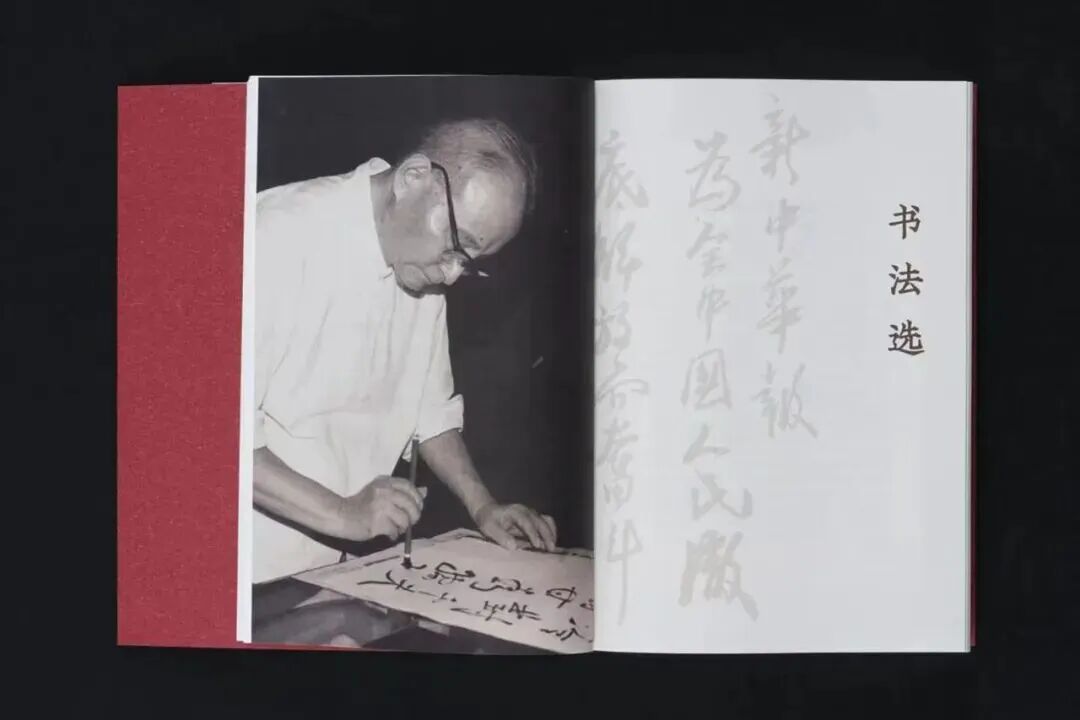 书法选
新中華報
为全中國人民澈
底解放而奋斗